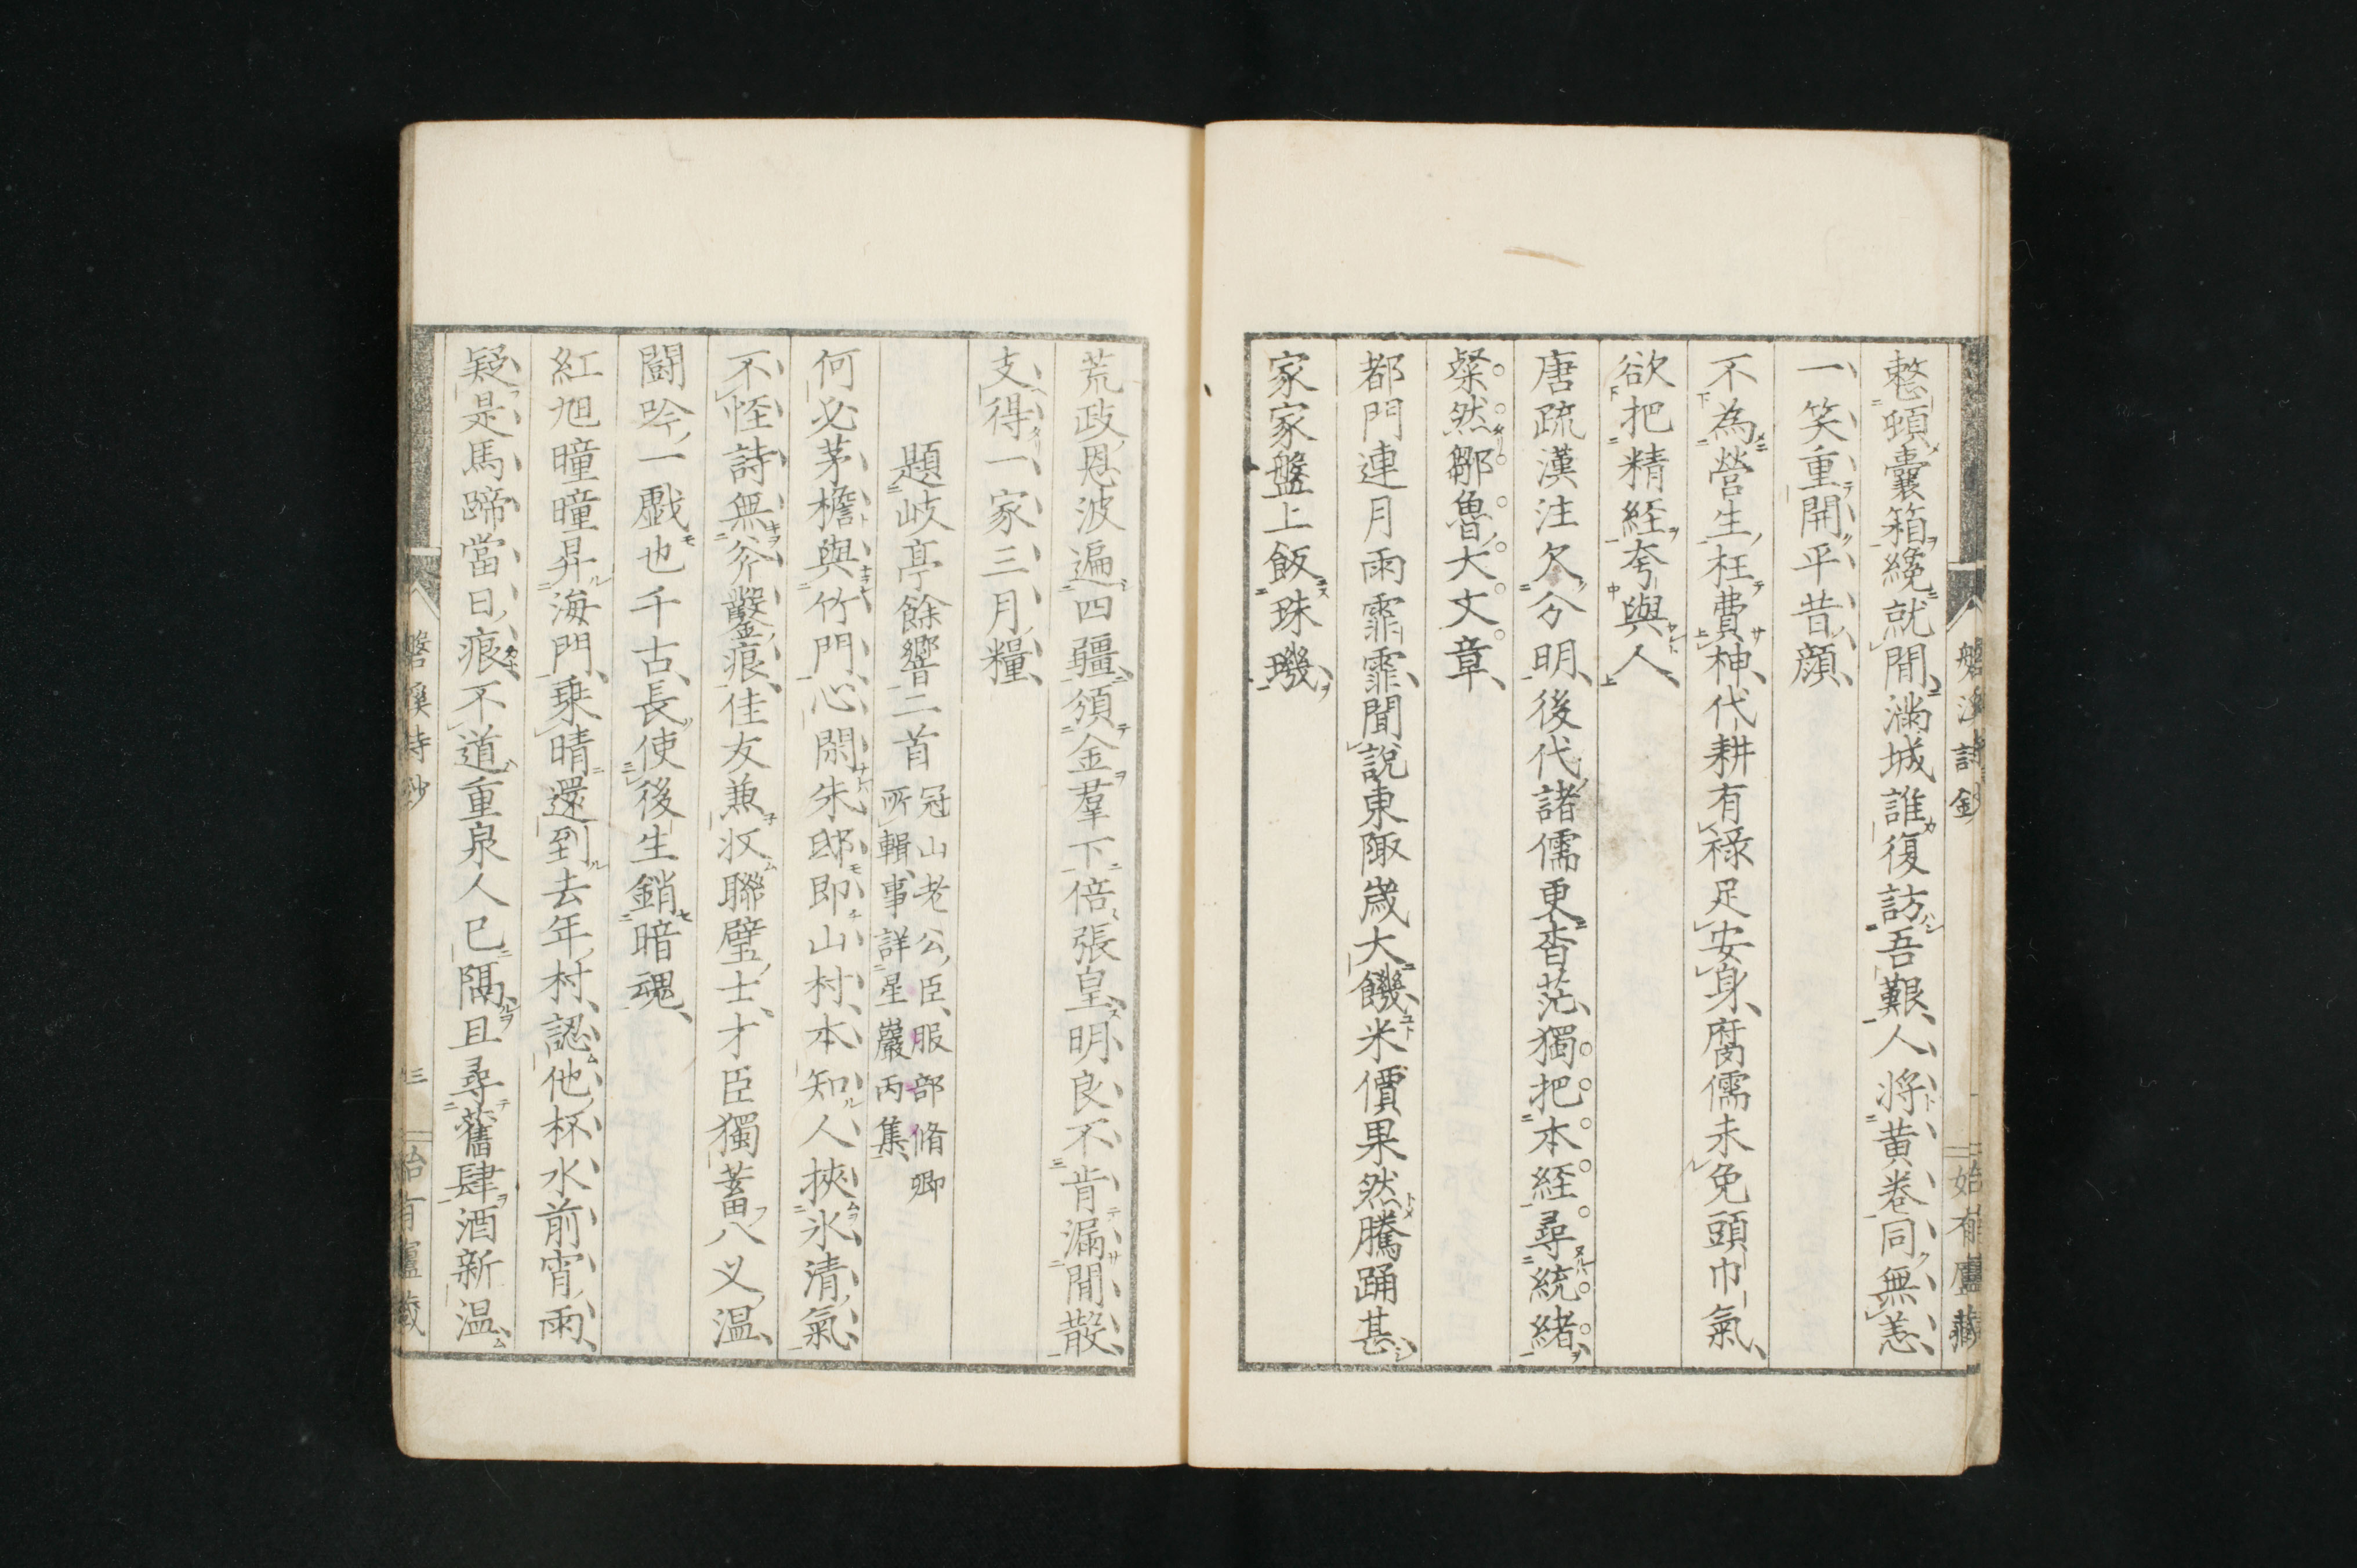 整頓囊箱纔就閒滿城誰復訪吾艱人將黃卷同無恙
一笑重開平昔顏
不為營生枉費神代耕有祿足安身腐儒未免頭巾氣
欲把精經夸與人
唐疏漢注欠分明後代諸儒更杳茫獨把本經尋統緒
粲然鄒魯大文章
都門連月雨霏霏聞說東陬歲大饑米價果然騰踊甚
家家盤上飯珠璣
荒政恩波遍四疆須金羣下倍張皇明良不肯漏閒散
支得一家三月糧
題岐亭餘響二首
冠山老公臣服部脩卿
所輯事詳星巖丙集
何必茅檐與竹門心閒朱邸即山村本知人挾氷清氣
不怪詩無斧鑿痕佳友兼收聯璧士才臣獨蓄八叉温
鬪吟一戲也千古長使後生銷暗魂
紅旭曈曈昇海門乗晴還到去年村認他杯水前宵雨
疑是馬蹄當日痕不道重泉人已隔且尋舊肆酒新温
磐溪詩鈔
三
始有廬藏